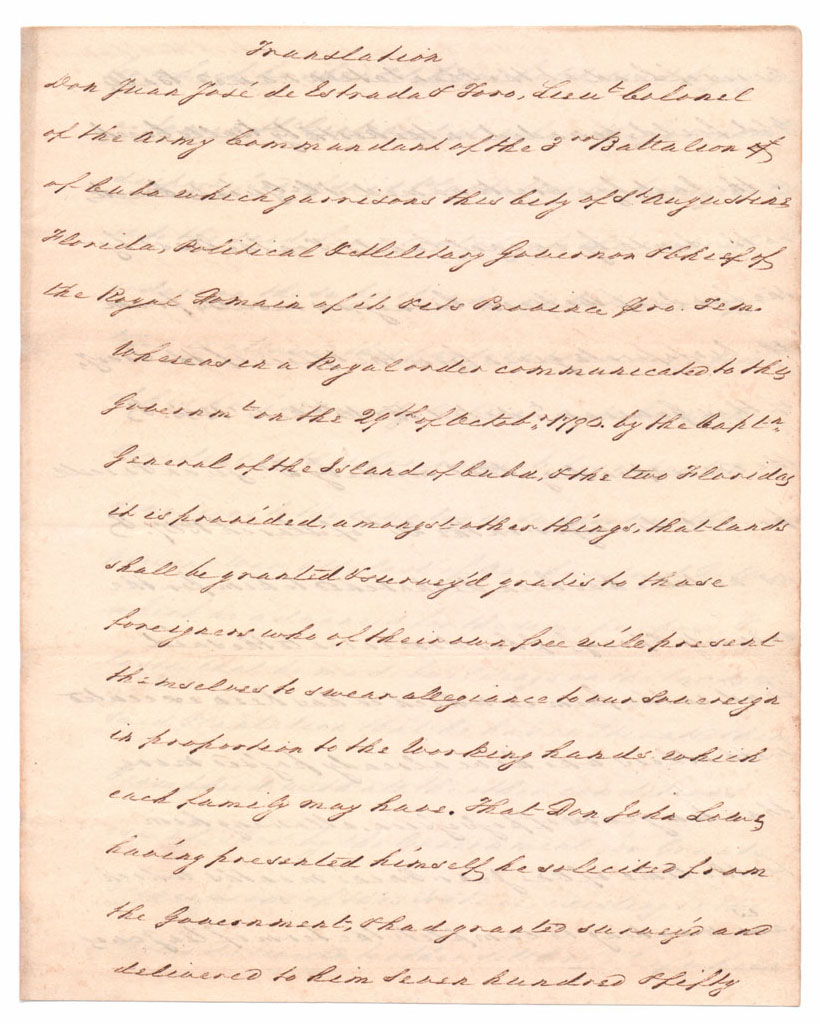 Translation
Don Juan José de Estrada & Toro, Lieut Colonel
of the Army Commandant of the 3rd Battalion of
of Cuba which garrisons this City of St Augustine
Florida, Political & Military Governor & Chief of
the Royal Domain of it & its Province Pro. Tem.
Whereas in a Royal order communicated to this
Governmt on the 29th of Octobr 1790. by the Captn
General of the Island of Cuba, & the two Floridas
it is provided, amongst other things, that lands
shall be granted & survey'd gratis to those
foreigners who of their own free will present
themselves to swear allegiance to our Sovereign
in proportion to the working hands which
each family may have. That Don John Lowe
having presented himself, he solicited from
the Government, & had granted survey'd and
delivered to him Seven hundred & fifty